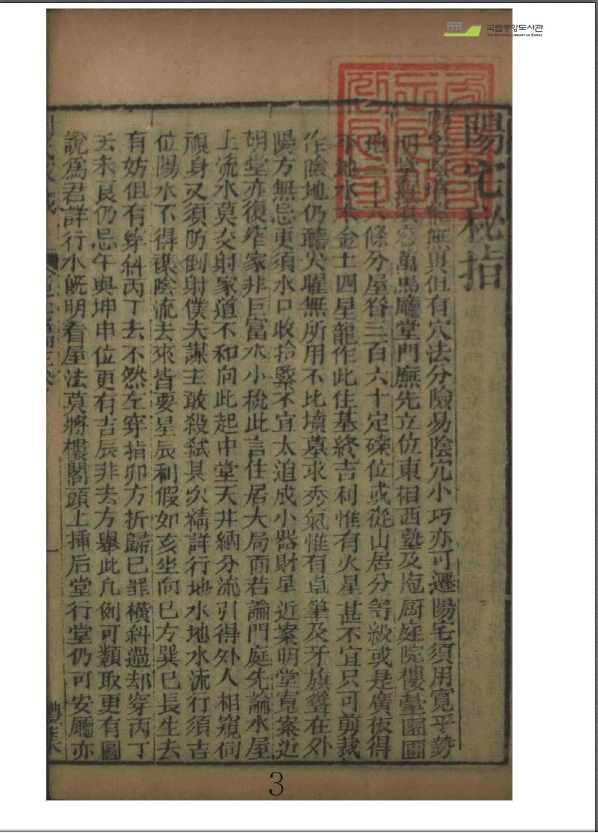 國立中央도서관
THE NATIONAL LIBRARY OF KOREA
陽宅秘指
無異但有穴法分險易陰穴小巧亦可遷陽宅須用寬平勢
萬馬廳堂門廡先立位東相西塾及庖廚庭院樓臺園圃
條分屋脊三百六十定磉位或從山居分等級或是廣板得
地水金土四星龍作此住基終吉利惟有火星甚不宜只可剪裁
作陰地仍聽火曜無所用不比墳墓求秀氣惟有卓筆及牙旗聳在外
陽方無忌更須水口收拾緊不宜太迫成小器財星近案明堂寬案近
明堂亦復窄家非巨富水小稅此言住居大局面若論門庭先論水屋
上流水莫交射家道不和向此起中堂天井納分流引得外人相窺伺
視身又須防倒射僕夫謀主敢殺弒其次精詳行地水地水流行須吉
位陽水不得襍陰流去來皆要星辰利假如亥坐向巳方巽巳長生去
有妨但有穿斜丙丁去不然左穿指卯方折歸巳罪橫斜過却穿丙丁
去未艮仍忌午與坤申位更有吉辰非去方舉此凡例可類取更有圖
說爲君詳行水旣明看屋法莫將樓閣頭上揷后堂行堂仍可安廳亦
3